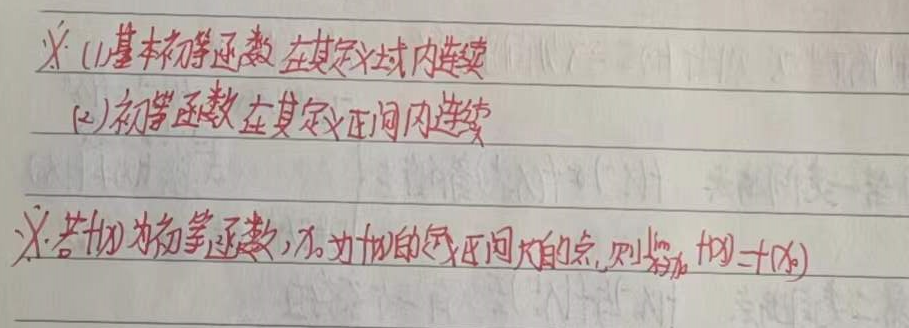 ※ (1)基本初等函数在其定义域内连续
(2)初等函数在其定义区间内连续
※.若f(x)为初等函数,x₀为f(x)的定义区间内的点,则lim x→x₀ f(x)=f(x₀)